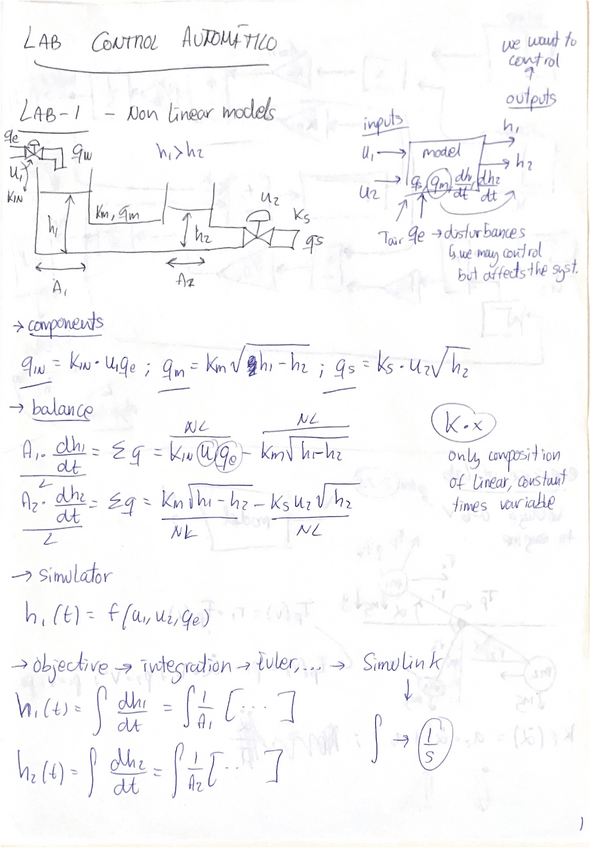 LAB CONTROL AUTOMÁTICO
we want to
control
outputs
LAB-1 - Non linear models
qe
qIN
u1
KIN
h1 > h2
Km, qm
h1
h2
u2
Ks
qs
A1
A2
inputs
u1
u2
model
qs, qm, dh1/dt, dh2/dt
h1
h2
Tair qe → disturbances
↳ we may control
but affects the syst.
→ components
qIN = KIN · u1qe ; qm = Km√h1-h2 ; qs = Ks · u2√h2
→ balance
NL NL
A1 · dh1/dt = Σq = KIN u1 qe - Km√h1-h2
L
A2 · dh2/dt = Σq = Km√h1-h2 - Ks u2√h2
L NL NL
K·x
only composition
of linear, constant
times variable
→ simulator
h1(t) = f(u1, u2, qe)
→ objective → integration → Euler, ... → Simulink
h1(t) = ∫ dh1/dt = ∫ 1/A1 [...]
∫ → 1/s
h2(t) = ∫ dh2/dt = ∫ 1/A2 [...]
1